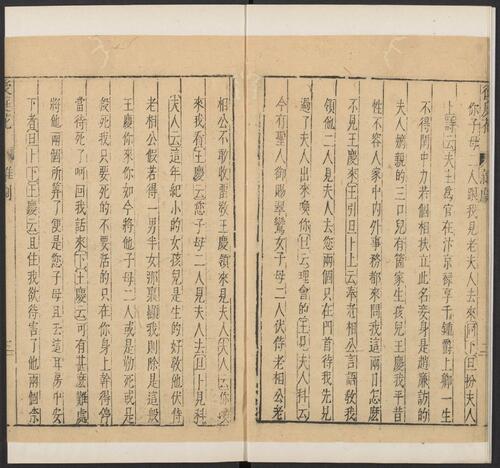 後庭花 雜劇 二
你子母二人跟我見老夫人去來同下旦扮夫人
上詩云夫主爲官在汴京祿享千鍾爵上卿一生
不得閨中力若個相扶立此名妾身是趙廉訪的
夫人嫡親的三口兒有箇家生孩兒王慶我平昔
性不容人家中內外事務都來問我這兩日怎麽
不見王慶來王引旦卜上云奉着相公言語教我
領他二人見夫人去您兩個只在門首待我先見
過了夫人出來喚你旦云理會的王見夫人科云
今有聖人御賜翠鸞女子母二人伏侍老相公老
相公不敢收留教王慶領來見夫人夫人云你喚
來我看王慶云您子母二人見夫人去旦卜見科
夫人云這年紀小的女孩兒是生的好教他伏侍
老相公假若得一男半女那裏顯我則除是這般
王慶你來你如今將他子母二人或是勒死或是
殺死我只要死的不要活的只在你身上幹得停
當待死了呵回我話來下王慶云可有甚麽難處
將他兩個所算了便是您子母且在這耳房中安
下者旦卜下王慶云且住我欲待害了他兩個奈
後庭花 雜劇 三